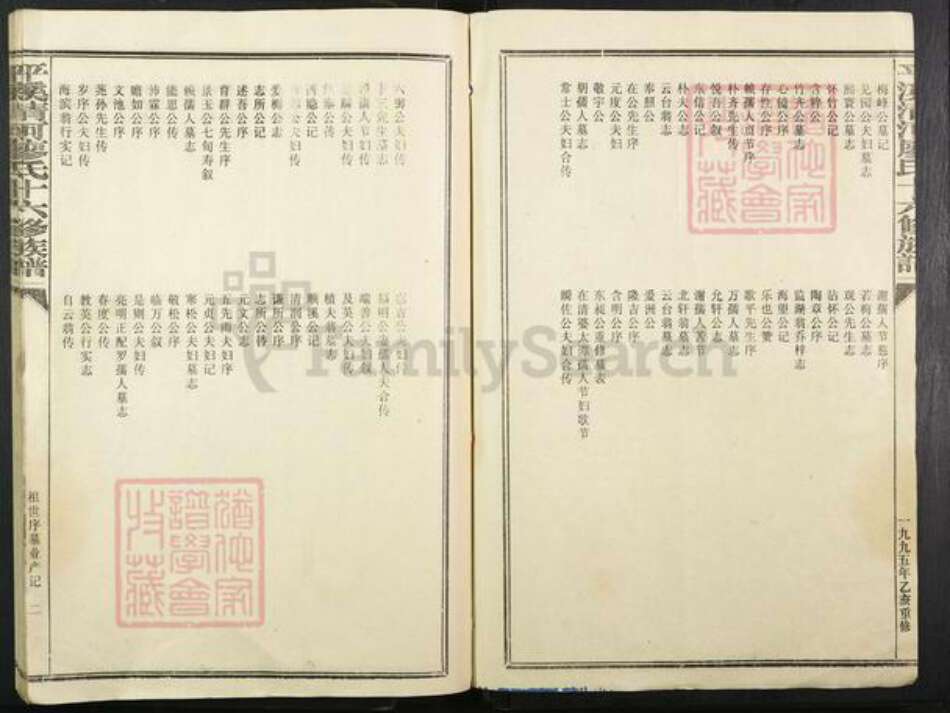 梅峰公墓记
见园公夫妇墓志
熊寰公墓志
怀竹公记
含粹公
竹卉公墓志
心镜公序
存性公序
赖孺人贞节序
朴齐先生传
悦吾公叙
东信公记
朴夫公志
云台翁志
奉颐公
在公先生序
元度公夫妇
敬宇公
胡孺人墓志
常士公夫妇合传
谢孺人节慈序
若梅公墓志
观公先生志
沾怀公记
陶章公序
监湖翁乔梓志
海望公记
乐也公赞
歌平先生序
万孺人墓志
允轩公志
谢孺人苦节
北轩翁墓志
云台翁墓志
爱洲公
隆吉公序
含明公记
东昶公重修墓表
在清婆太谯孺人节妇歌节
嶙佐公夫妇合传
一九九五年乙亥重修
平溪清河廖氏十六修族谱
公夫妇传
先生墓志
孺人节妇传
公夫妇传
公传
公记
公夫妇传
爱梅公志
志所公记
述吾公序
育群公先生序
景玉公七旬寿叙
赖孺人墓志
能思公传
沛霖公序
赡如公序
文池公序
尧孙先生传
岁序公夫妇传
海滨翁行实记
端善公夫妇叙
及英公夫妇传
植夫翁墓志
顺溪公记
清润公序
谦所公序
志所公传
元文公志
五先甫夫妇序
元贞公夫妇记
寒松公夫妇墓志
敬松公序
临万公叙
是则公夫妇传
亮明正配罗孺人墓志
春度公传
教英公行实志
自云翁传
祖世序墓业产记 二